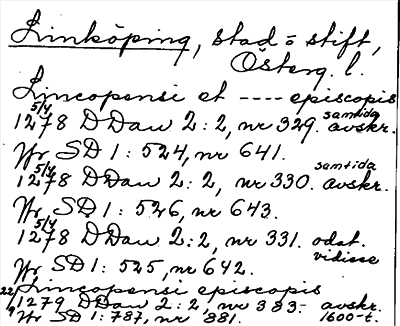 Linköping, stad = stift,
Österg. l.
Lincopensi et ---- episcopis
5/4 1278 DDan 2:2, nr 329. samtida avskr.
Jfr SD 1: 524, nr 641.
5/4 1278 DDan 2:2, nr 330. samtida avskr.
Jfr SD 1: 526, nr 643.
5/4 1278 DDan 2:2, nr 331. odat. vidisse
Jfr SD 1: 525, nr 642.
Lincopensi episcopis
1279 DDan 2:2, nr 383- avskr.
Jfr SD 1: 787, nr 881. 1600-t.